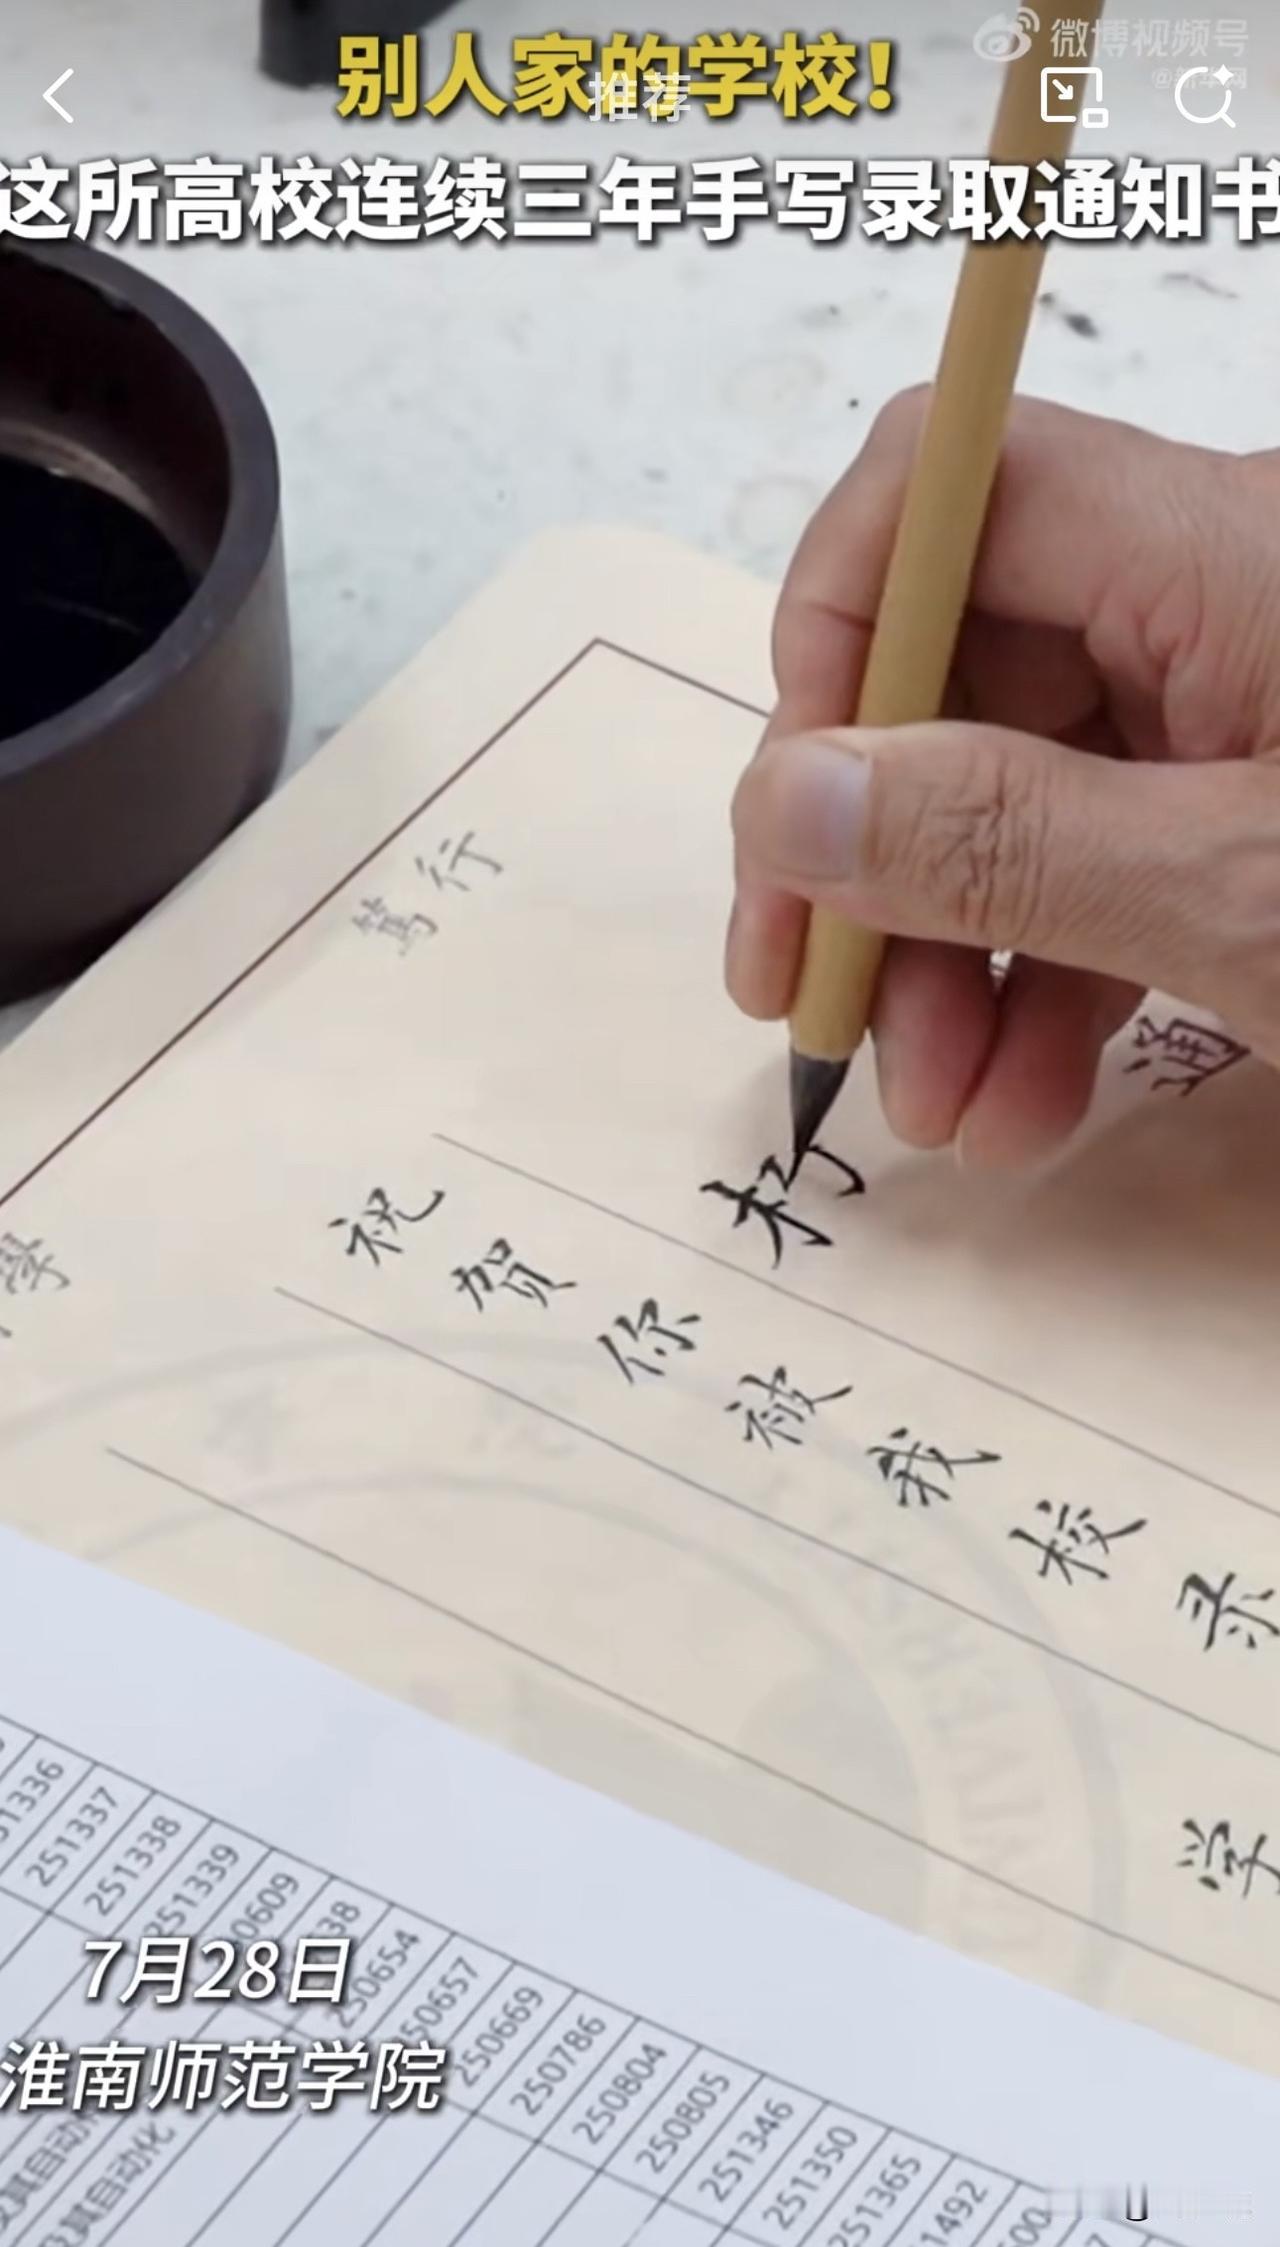 微博视频号
@新华网
别人家的学校！
推荐
这所高校连续三年手写录取通知书
篤行
通
學
祝贺你被我校录
学
251336
251337
251338
251339
250654
250657
250669
250786
250804
250805
251346
251350
251365
7月28日
淮南师范学院